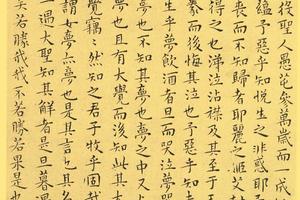 役聖人愚芚參萬歲而一成
蘊予惡乎知悅生之非惑耶予
喪而不知歸者耶麗之姬艾封
得之也涕泣沾襟及其至于
豢而後悔其泣也予惡乎知
生乎夢飲酒者旦而哭泣夢
夢也不知其夢也夢之中又占
夢也且有大覺而後知此其大
覺竊竊然知之君乎牧乎固哉
謂女夢亦夢也是其言也其名
一遇大聖知其解者是旦暮遇
矣若勝我我不若勝若果是也